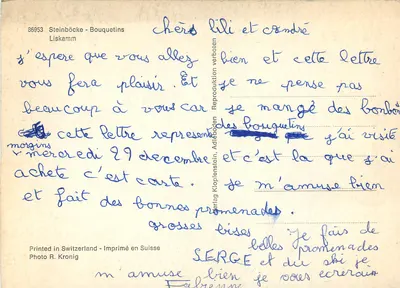 86953 Steinböcke - Bouquetins
Liskamm
chèrs lili et andré
j'espère que vous allez bien et cette lettre
vous fera plaisir. Et je ne pense pas
beaucoup à vous car je mange des bonbons
cette lettre represente des bouquetins j'ai visité
morgins mercredi 29 decembre et c'est la que j'ai
acheté c'est carte. je m'amuse bien
et fait des bonnes promenades.
grosses bises
SERGE
je fais de
belles promenades
et du ski je
m'amuse bien je vous ecrerain
Fabienne
Printed in Switzerland - Imprimé en Suisse
Photo R. Kronig
Verlag Klopfenstein, Adelboden Reproduktion verboten